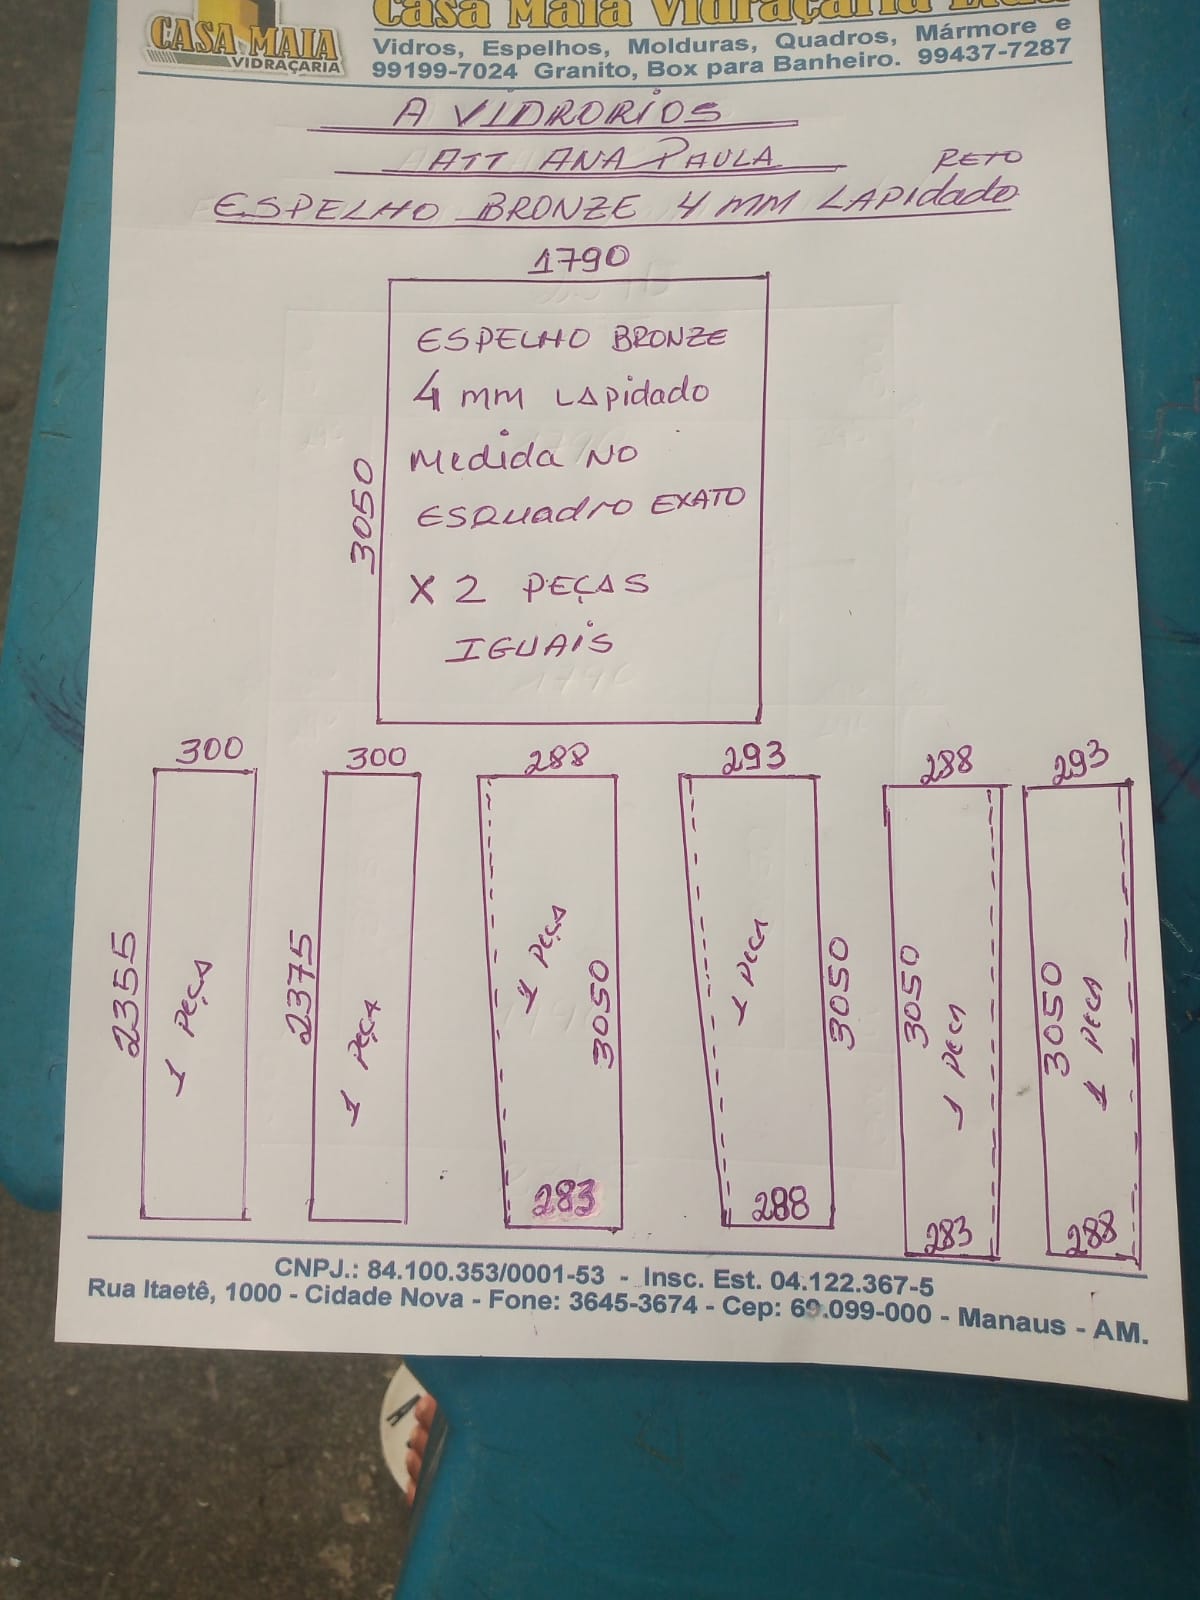 Casa Maia Vidraçaria Ltda
CASA MAIA
VIDRAÇARIA
Vidros, Espelhos, Molduras, Quadros, Mármore e
99199-7024 Granito, Box para Banheiro. 99437-7287
A VIDRORIOS
ATT ANA PAULA
RETO
ESPELHO BRONZE 4 MM LAPIdado
1790
3050
ESPELHO BRONZE
4 mm LAPidado
Medida NO
ESQUAdro EXATO
X 2 PEÇAS
IGUAIS
300
2355
1 PEÇA
300
2375
1 PEÇA
288
1 PEÇA
3050
283
293
1 PEÇA
3050
288
288
3050
1 PEÇA
283
293
3050
1 PEÇA
288
CNPJ.: 84.100.353/0001-53 - Insc. Est. 04.122.367-5
Rua Itaetê, 1000 - Cidade Nova - Fone: 3645-3674 - Cep: 69.099-000 - Manaus - AM.